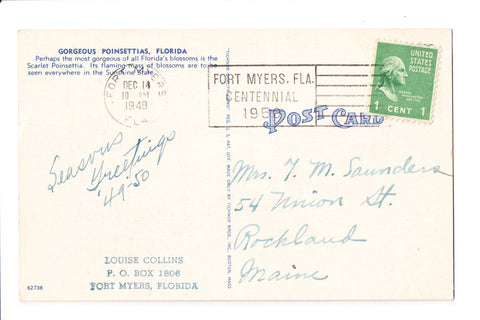 GORGEOUS POINSETTIAS, FLORIDA
Perhaps the most gorgeous of all Florida's blossoms is the
Scarlet Poinsettia. Its flaming mass of blossoms are to be
seen everywhere in the Sunshine State.
FORT MYERS
DEC 14
10 AM
1949
FLA.
FORT MYERS, FLA.
CENTENNIAL
195
UNITED STATES
POSTAGE
1 CENT 1
POST CARD
Seasons
Greetings
'49-50
Mrs. T. M. Saunders
54 Union St.
Rockland
Maine
LOUISE COLLINS
P. O. BOX 1806
FORT MYERS, FLORIDA
62738